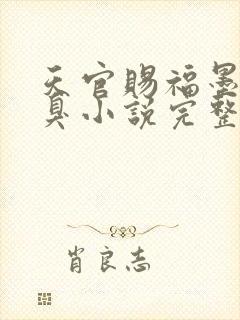 天官賜福墨
臭小説完整
肖良志